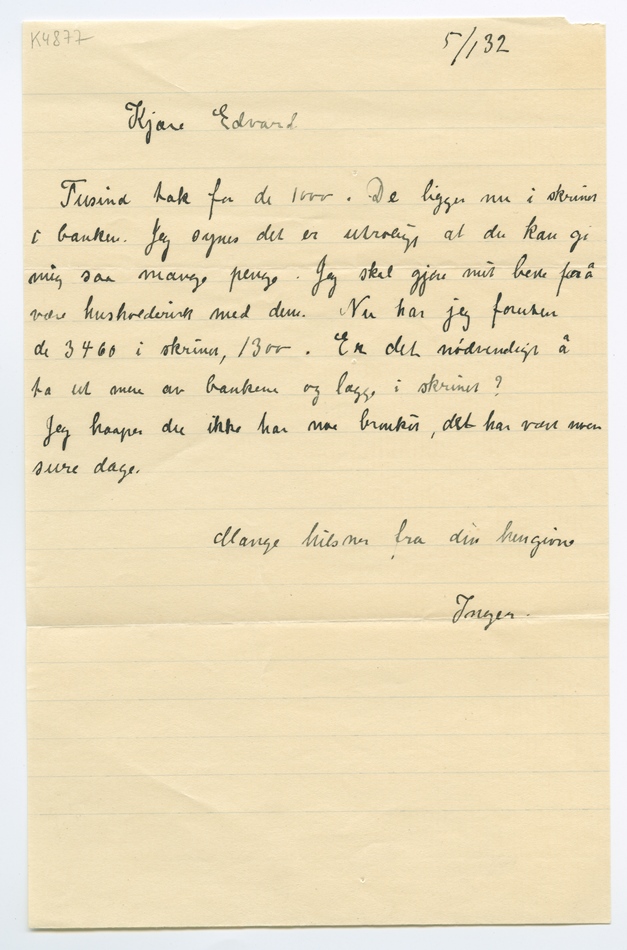 K4877
5/1 32
Kjære Edvard
Tusind tak for de 1000. De ligger nu i skrinet
i banken. Jeg synes det er utroligt at du kan gi
mig saa mange penge. Jeg skal gjøre mit beste for å
være husholderisk med dem. Nu har jeg foruten
de 3460 i skrinet, 1300. Er det nødvendigt å
ta ut mere av bankene og lægge i skrinet?
Jeg haaper du ikke har noe bronkit, det har vært noen
sure dage.
Mange hilsner fra din hengivne
Inger.